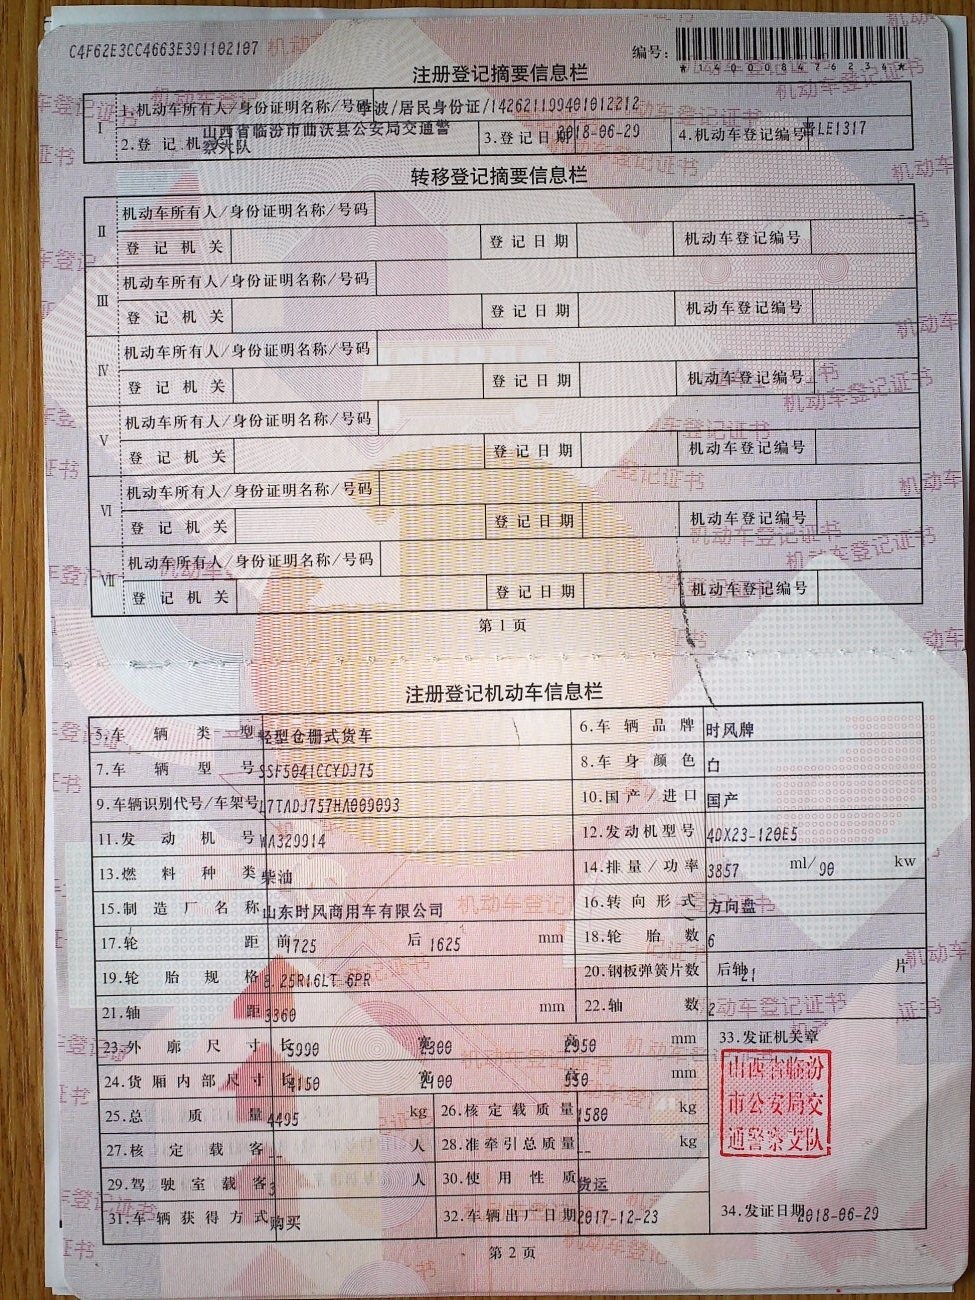 C4F62E3CC4663E391102107
编号:
*140008476234*
注册登记摘要信息栏
I 1.机动车所有人/身份证明名称/号码 李波/居民身份证/142621199401012212
2.登记机关 山西省临汾市曲沃县公安局交通警察大队 3.登记日期 2018-06-29 4.机动车登记编号 晋LE1317
转移登记摘要信息栏
II 机动车所有人/身份证明名称/号码
登记机关 登记日期 机动车登记编号
III 机动车所有人/身份证明名称/号码
登记机关 登记日期 机动车登记编号
IV 机动车所有人/身份证明名称/号码
登记机关 登记日期 机动车登记编号
V 机动车所有人/身份证明名称/号码
登记机关 登记日期 机动车登记编号
VI 机动车所有人/身份证明名称/号码
登记机关 登记日期 机动车登记编号
VII 机动车所有人/身份证明名称/号码
登记机关 登记日期 机动车登记编号
第1页
注册登记机动车信息栏
5.车辆类型 轻型仓栅式货车 6.车辆品牌 时风牌
7.车辆型号 SSF5041CCYDJ75 8.车身颜色 白
9.车辆识别代号/车架号 L7TADJ757HA009093 10.国产/进口 国产
11.发动机号 WA329914 12.发动机型号 4DX23-120E5
13.燃料种类 柴油 14.排量/功率 3857 ml/ 90 kw
15.制造厂名称 山东时风商用车有限公司 16.转向形式 方向盘
17.轮距 前1725 后1625 mm 18.轮胎数 6
19.轮胎规格 8.25R16LT 6PR 20.钢板弹簧片数 后轴 片
21.轴距 3360 mm 22.轴数 2
23.外廓尺寸 长5990 宽2300 高2950 mm 33.发证机关章
24.货厢内部尺寸 长4150 宽2100 高550 mm
山西省临汾
市公安局交
通警察支队
25.总质量 4495 kg 26.核定载质量 1580 kg
27.核定载客 -- 人 28.准牵引总质量 -- kg
29.驾驶室载客 3 人 30.使用性质 货运
31.车辆获得方式 购买 32.车辆出厂日期 2017-12-23 34.发证日期 2018-06-29
第2页